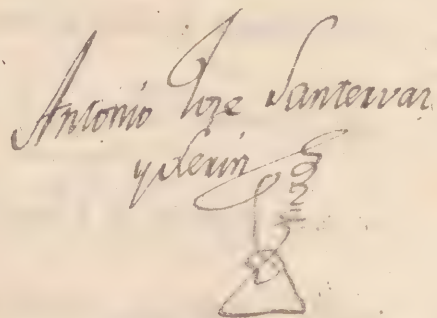 Antonio Joze Santervar
y Serin